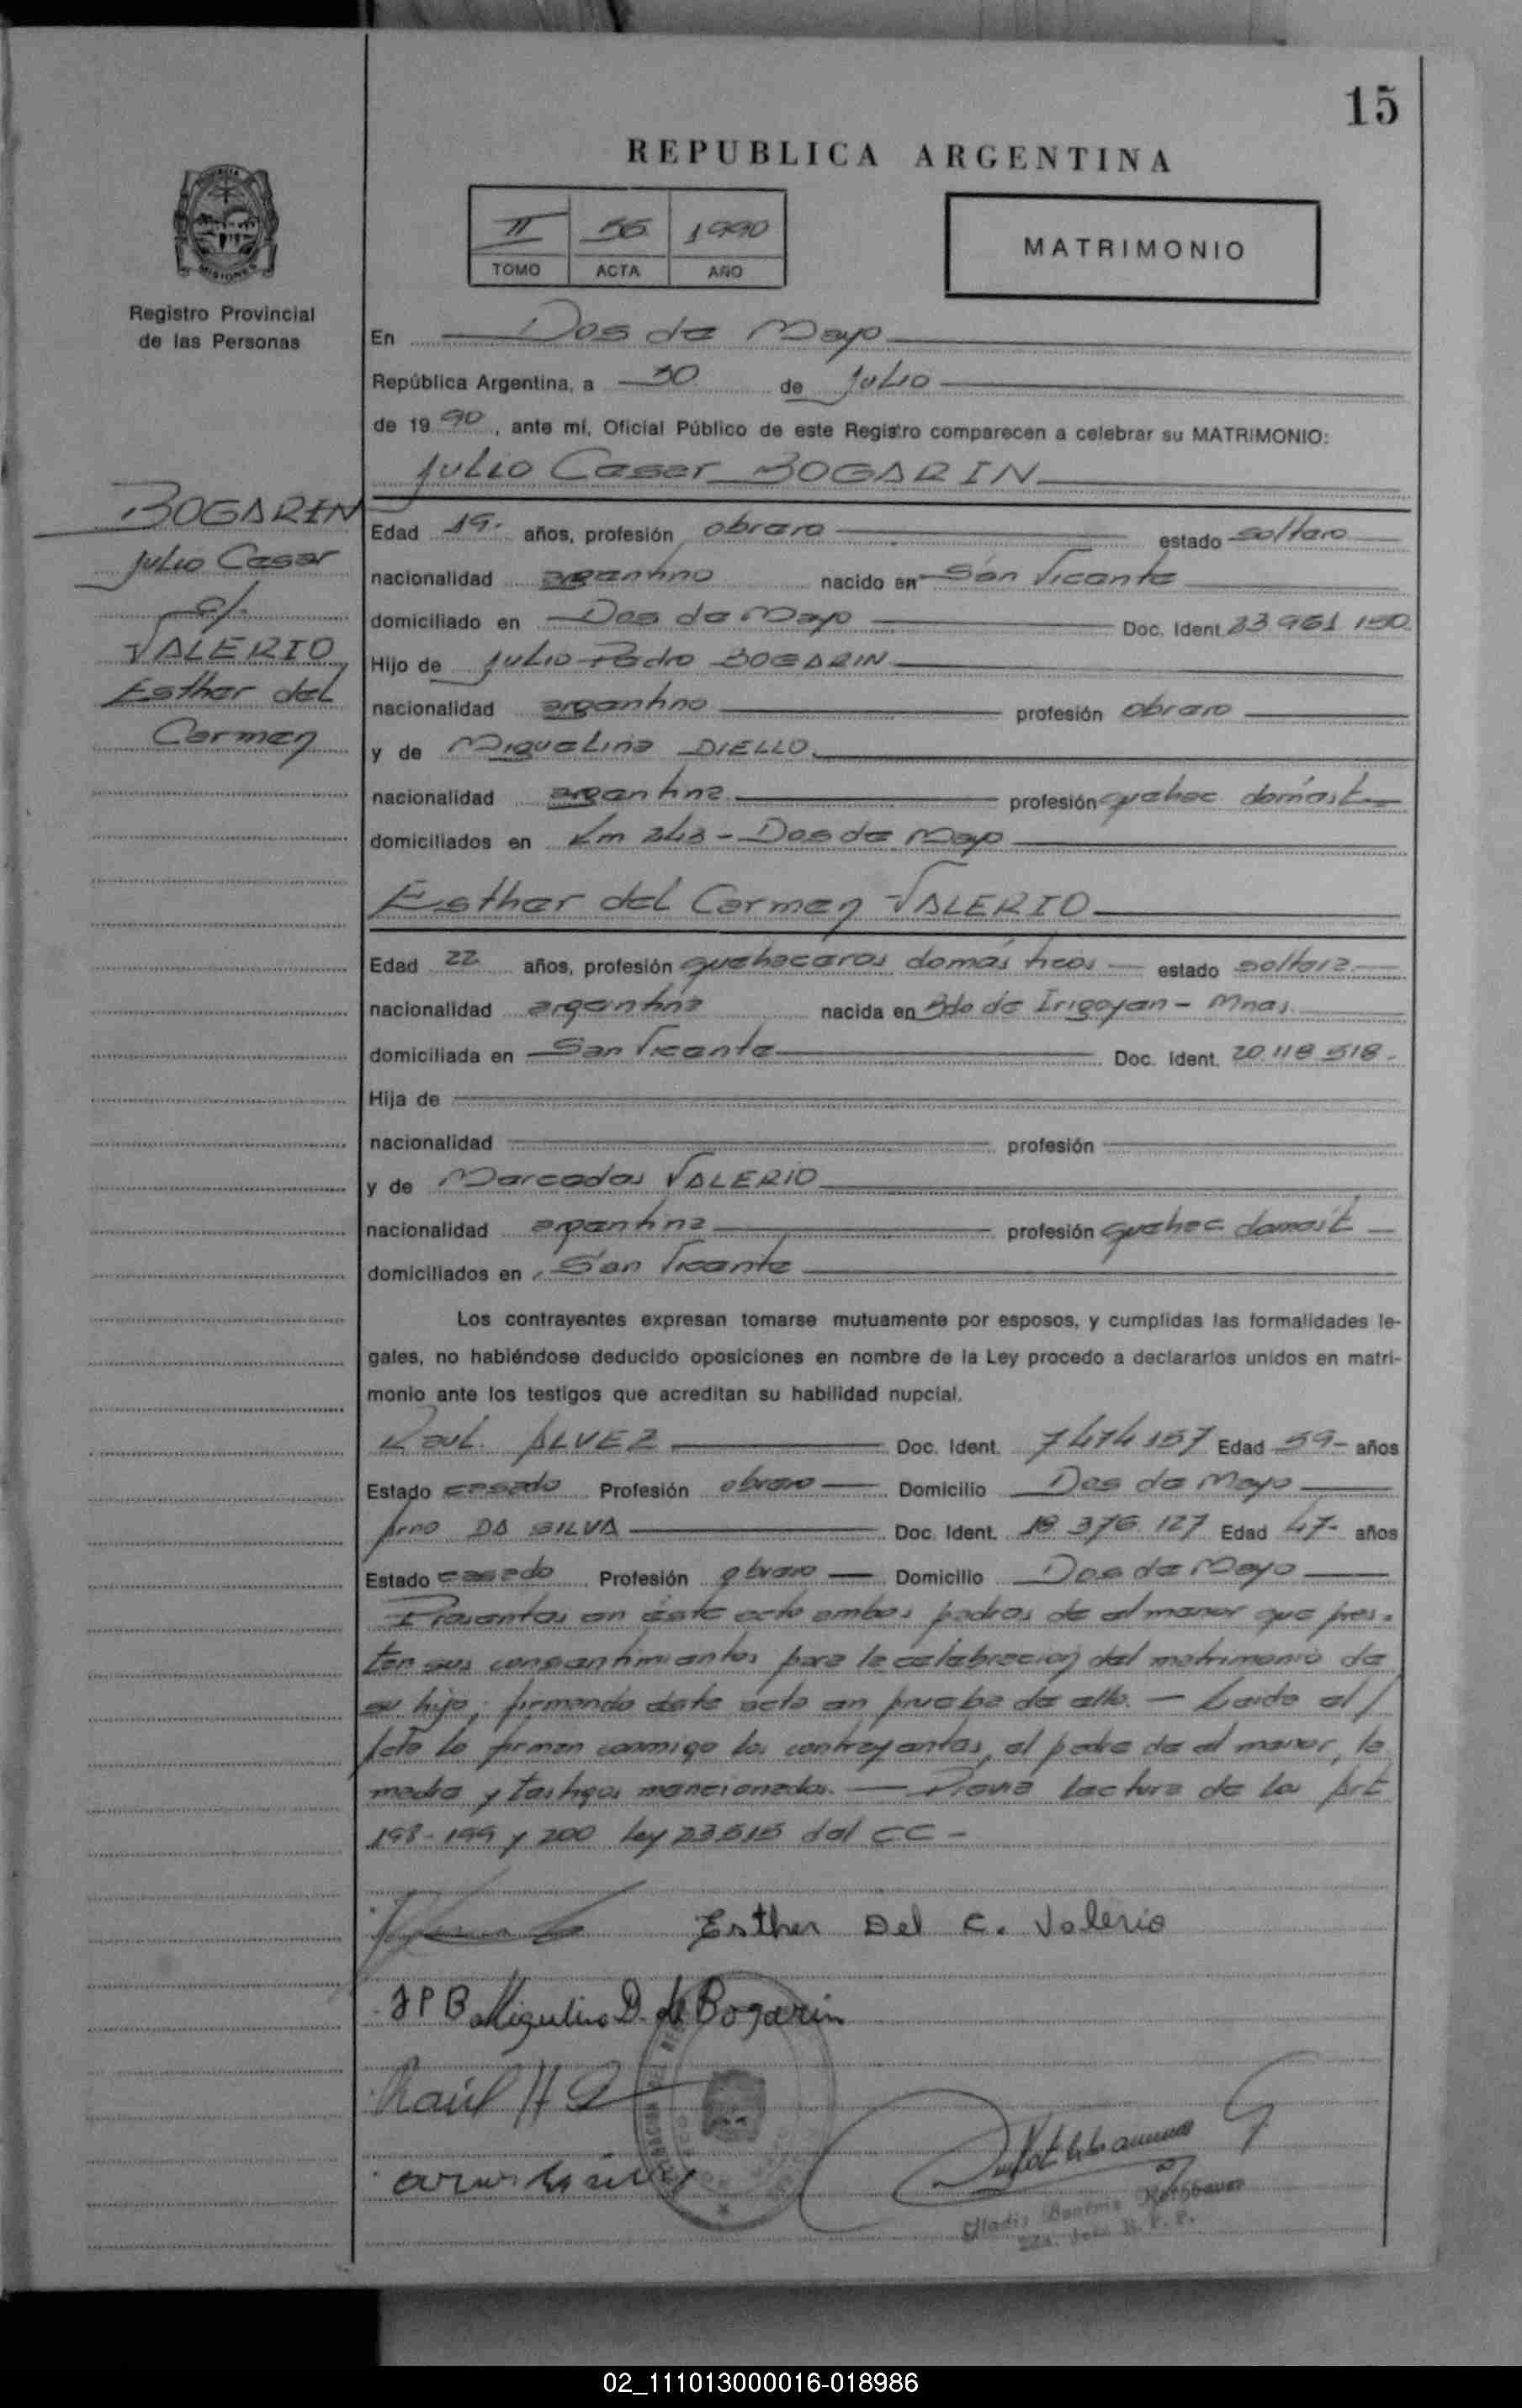 15
REPUBLICA ARGENTINA
II 56 1990
TOMO ACTA AÑO
MATRIMONIO
MISIONES
Registro Provincial
de las Personas
En Dos de Mayo
República Argentina, a 30 de Julio
de 1990, ante mí, Oficial Público de este Registro comparecen a celebrar su MATRIMONIO:
Julio Cesar BOGARIN
BOGARIN
Julio Cesar
c/.
VALERIO
Esther del
Carmen
Edad 19- años, profesión obrero estado soltero
nacionalidad argentino nacido en San Vicente
domiciliado en Dos de Mayo Doc. Ident. 23 961 150
Hijo de Julio Pedro BOGARIN
nacionalidad argentino profesión obrero
y de Miguelina DIELLO
nacionalidad argentina profesión quehac. domést
domiciliados en Km 243 - Dos de Mayo
Esther del Carmen VALERIO
Edad 22 años, profesión quehaceres domésticos estado soltera
nacionalidad argentina nacida en Bdo de Irigoyen - Mnes.
domiciliada en San Vicente Doc. Ident. 20 118 518-
Hija de
nacionalidad profesión
y de Mercedes VALERIO
nacionalidad argentina profesión quehac domést
domiciliados en San Vicente
Los contrayentes expresan tomarse mutuamente por esposos, y cumplidas las formalidades le-
gales, no habiéndose deducido oposiciones en nombre de la Ley procedo a declararlos unidos en matri-
monio ante los testigos que acreditan su habilidad nupcial.
Raul ALVEZ Doc. Ident. 7474157 Edad 59- años
Estado casado Profesión obrero Domicilio Dos de Mayo
Arno DA SILVA Doc. Ident. 18 376 127 Edad 47- años
Estado casado Profesión obrero Domicilio Dos de Mayo
Presentes en éste acto ambos padres de el menor que pres-
tan sus consentimientos para la celebracion del matrimonio de
su hijo, firmando éste acta en prueba de ello. - Leida el
Acta la firman conmigo los contrayentes, el padre de el menor, la
madre y testigos mencionados. - Previa lectura de los Art
198-199 y 200 ley 23515 del CC-
Esther Del C. Valerio
J P B Miguelina D. de Bogarin
Raúl
Gladis Beatriz
02_111013000016-018986